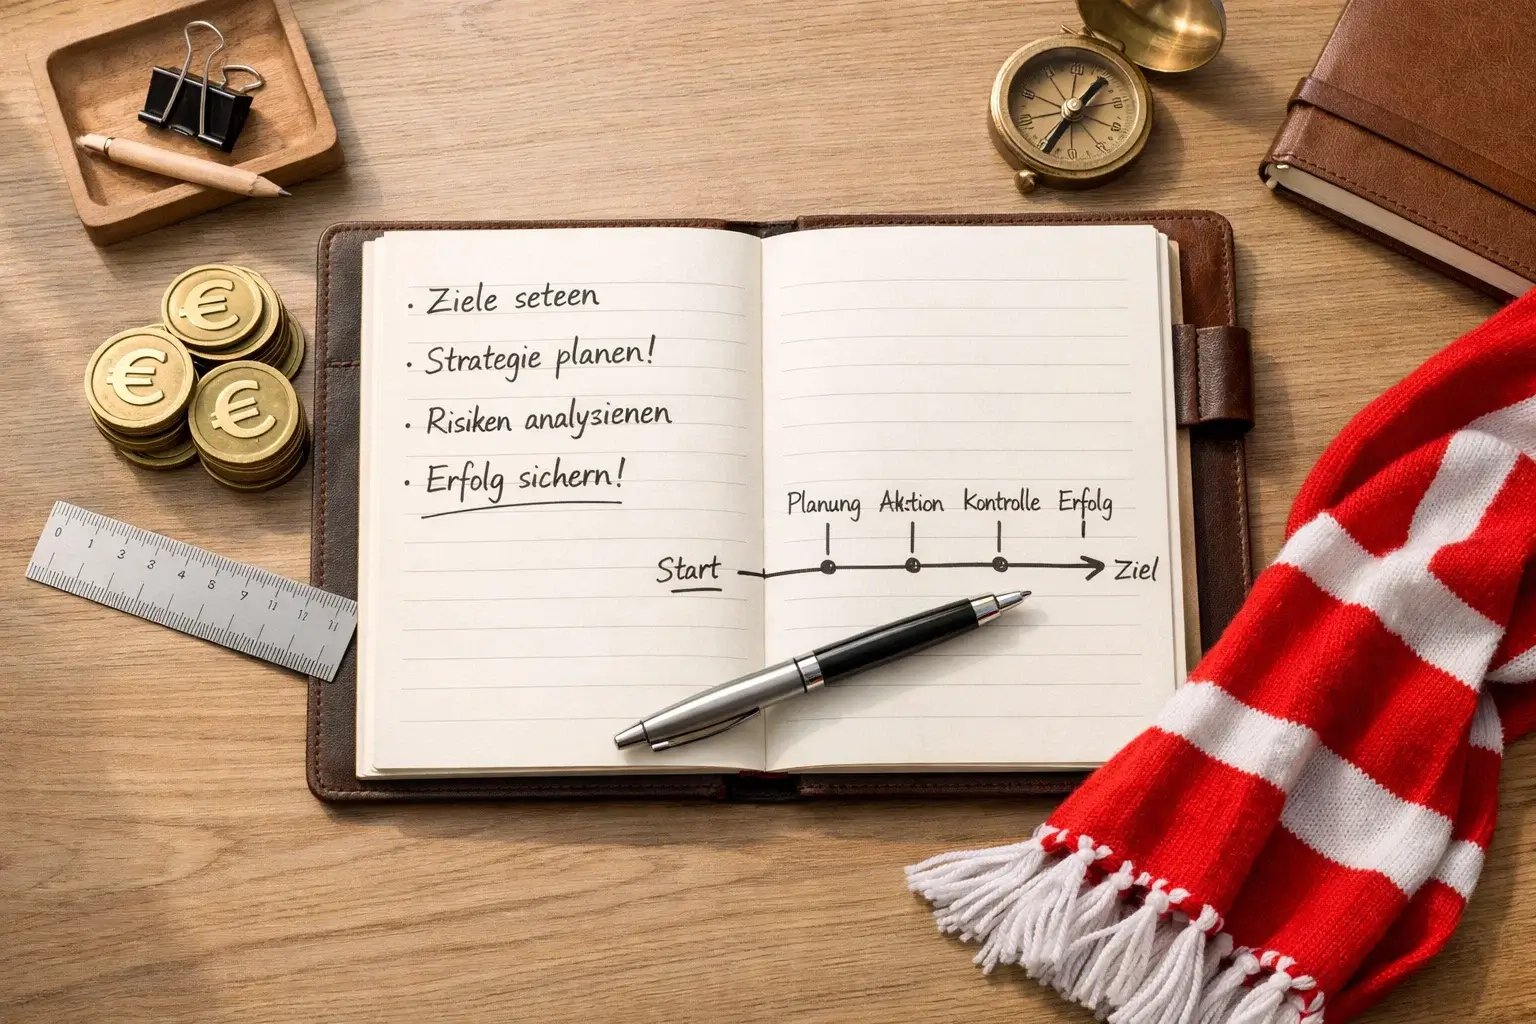 · Ziele seteen
· Strategie planen!
· Risiken analysienen
· Erfolg sichern!
Planung Aktion Kontrolle Erfolg
Start
Ziel
€
€
€
0 1 3 3 4 5 9 11 12 11